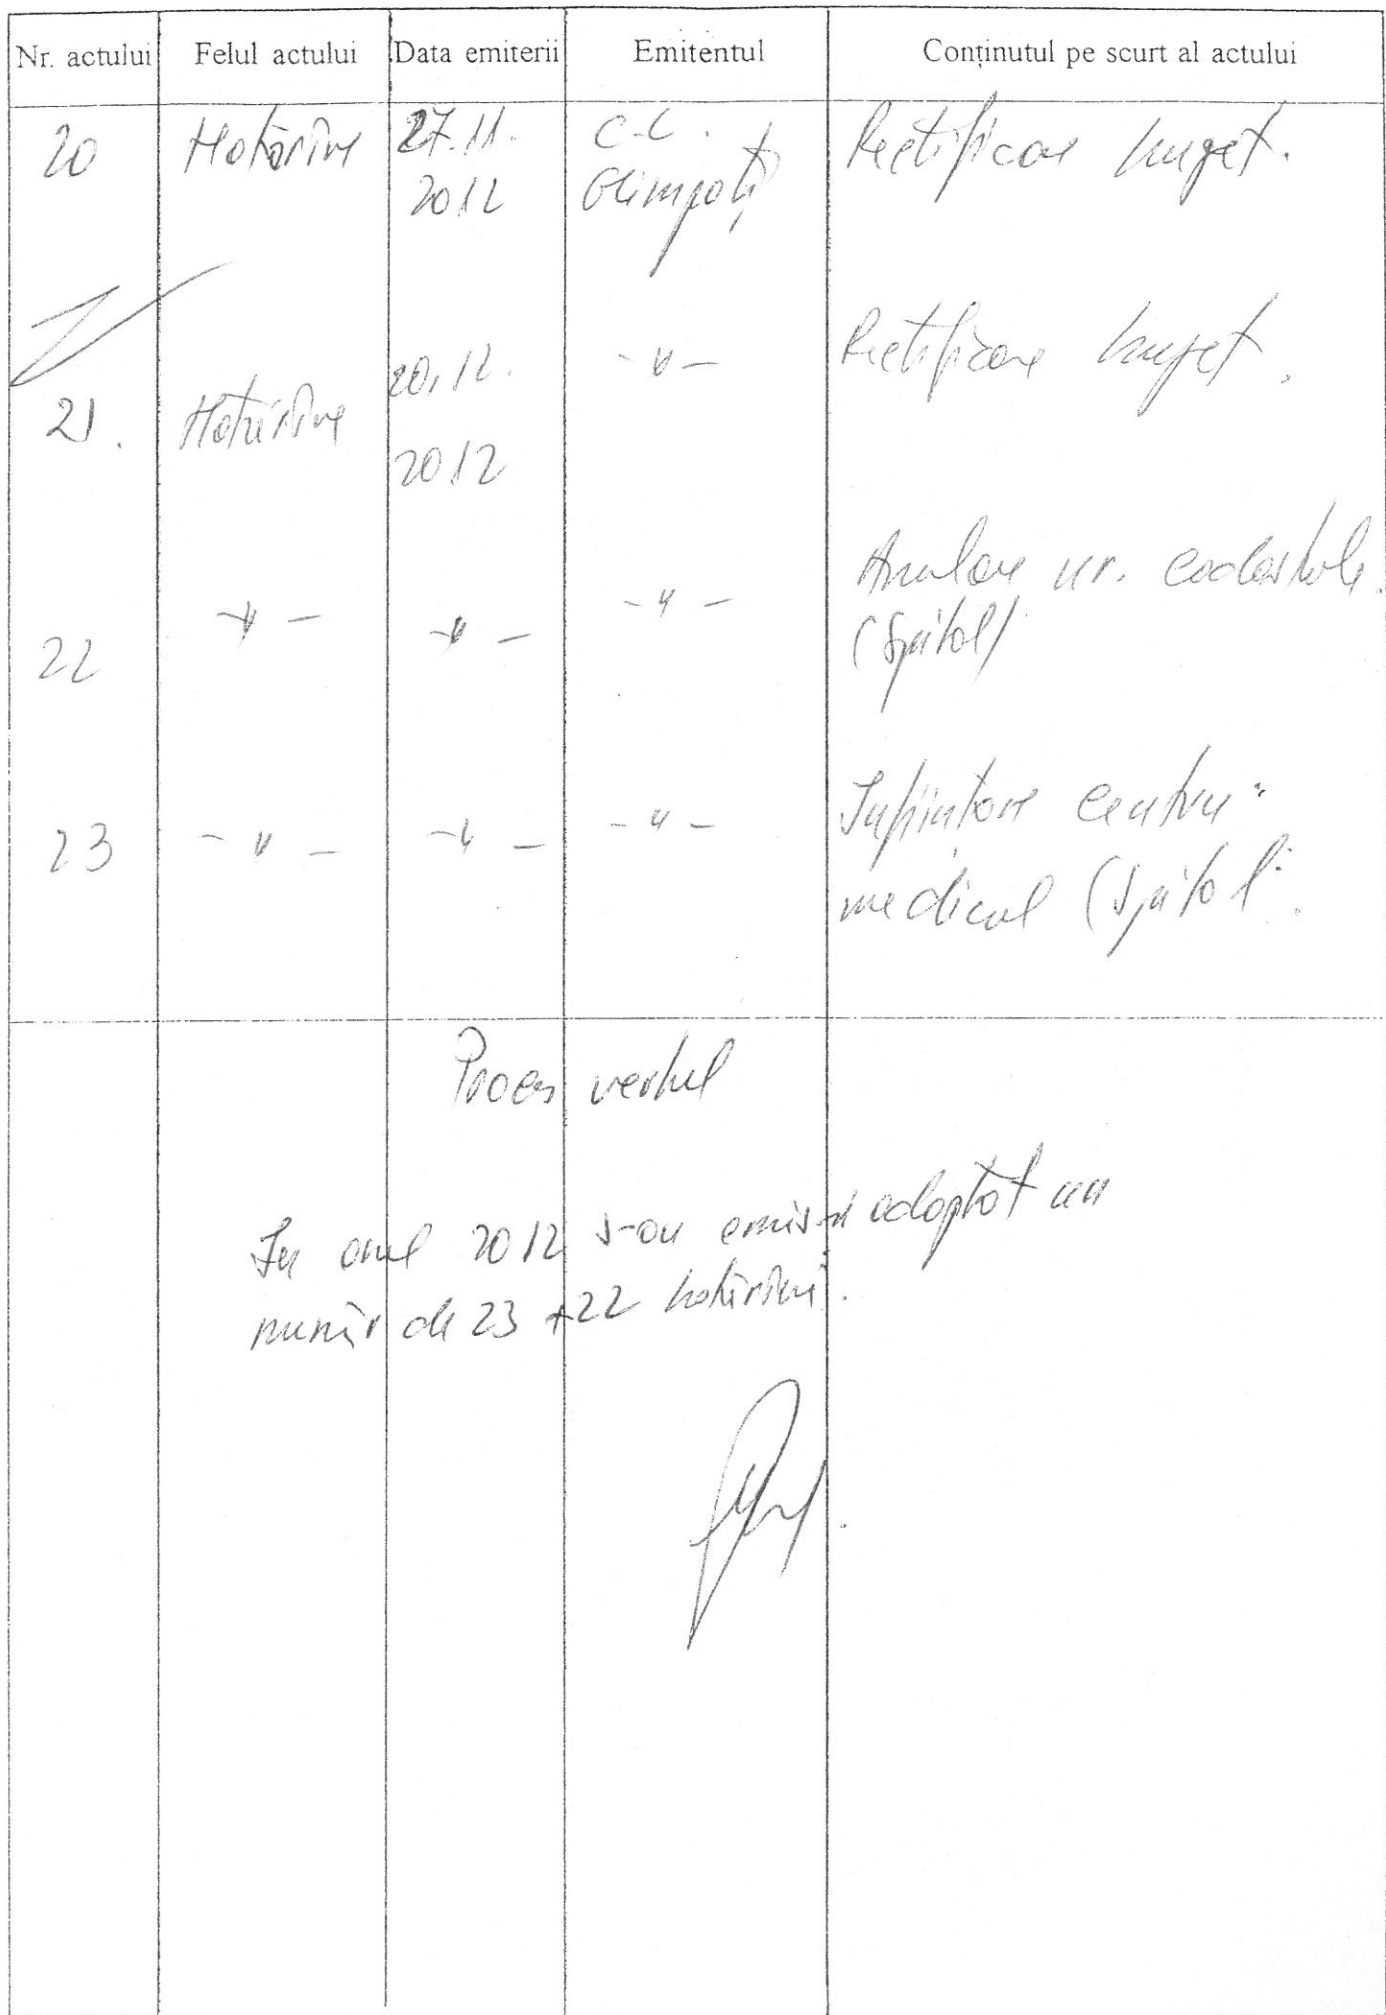 Nr. actului Felul actului Data emiterii Emitentul Conținutul pe scurt al actului
20 Hotărîre 27.11. C.L. Rectificare buget.
2012
21. Hotărîre 20.12. -"- Rectificare buget.
2012
22 -"- -"- -"- Anulare nr. cadastrale
(Spital)
23 -"- -"- -"- Înființare centru
medical (Spital
Proces verbal
În anul 2012 s-au emis și adoptat un
număr de 23 +22 hotărîri.